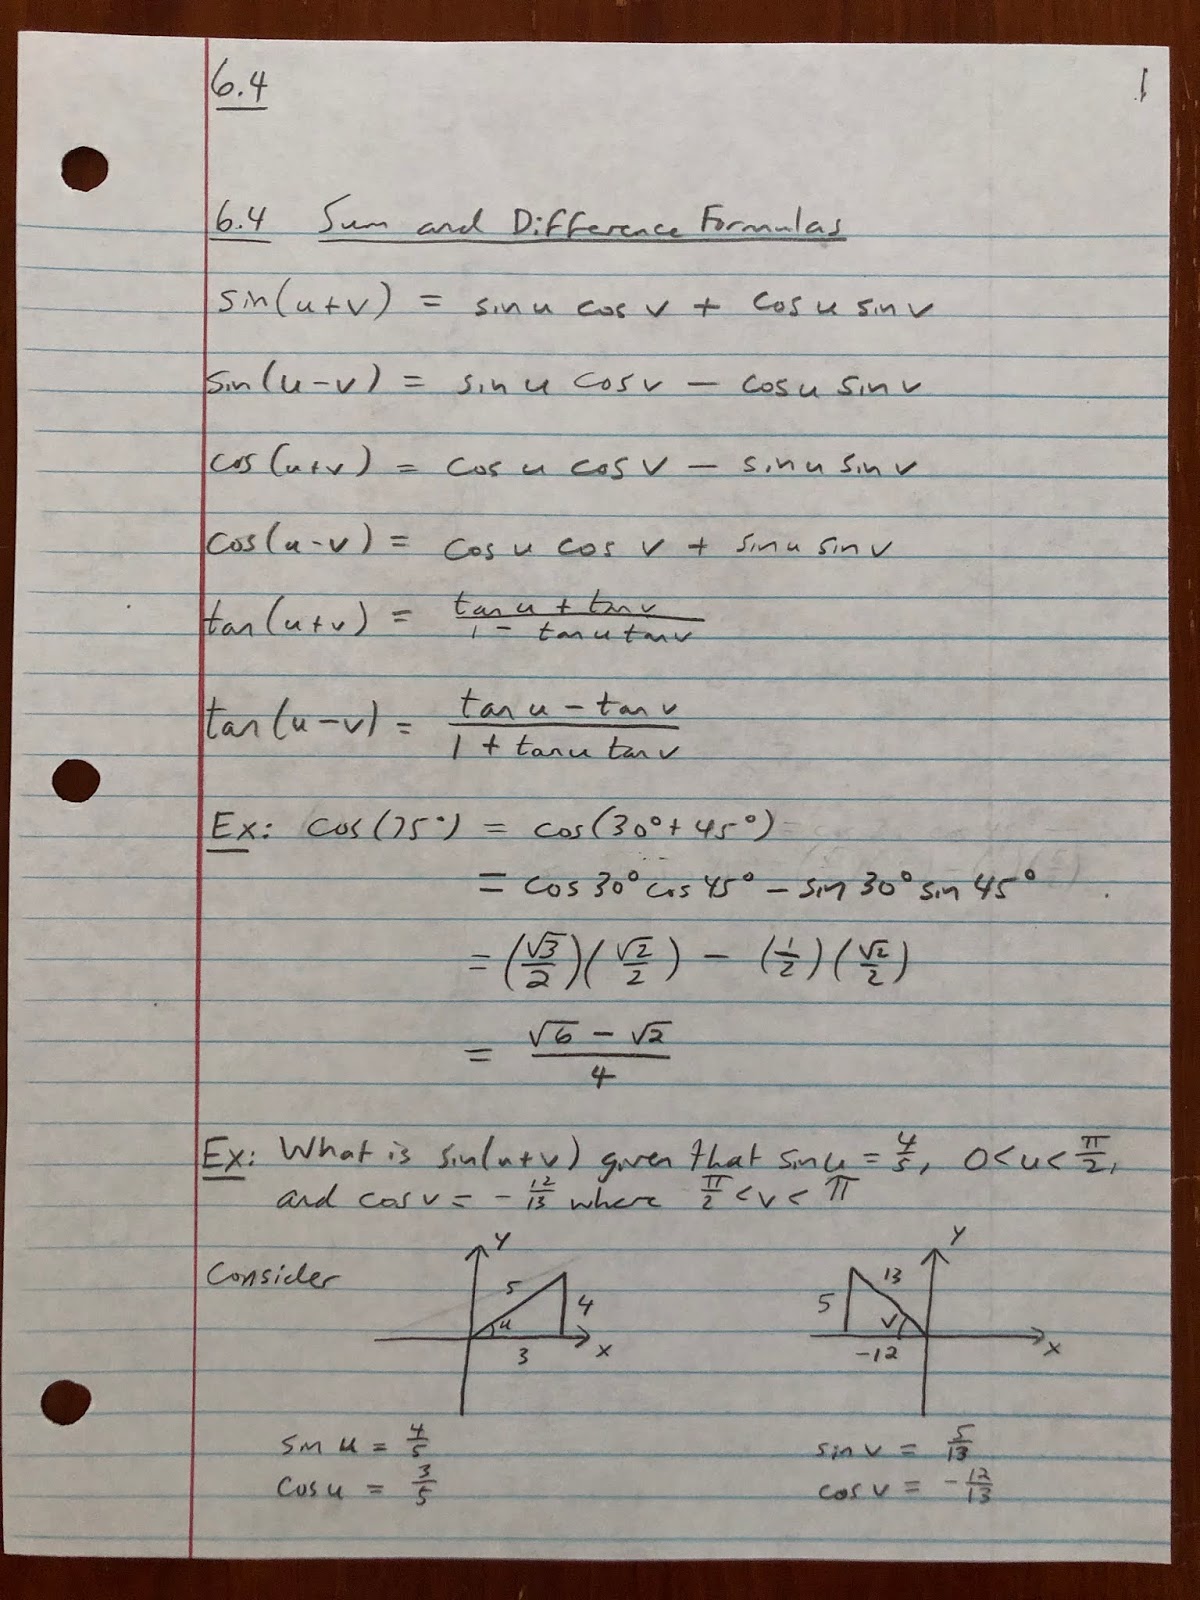 6.4
1
6.4 Sum and Difference Formulas
sin(u+v) = sin u cos v + cos u sin v
sin(u-v) = sin u cos v - cos u sin v
cos(u+v) = cos u cos v - sin u sin v
cos(u-v) = cos u cos v + sin u sin v
tan(u+v) = (tan u + tan v)/(1 - tan u tan v)
tan(u-v) = (tan u - tan v)/(1 + tan u tan v)
Ex: cos(75°) = cos(30°+45°)
= cos 30° cos 45° - sin 30° sin 45°
= (√3/2)(√2/2) - (1/2)(√2/2)
= (√6 - √2)/4
Ex: What is sin(u+v) given that sin u = 4/5, 0<u<π/2,
and cos v = -12/13 where π/2 < v < π
Consider
y
5
4
u
3
x
y
13
5
v
-12
x
sin u = 4/5
cos u = 3/5
sin v = 5/13
cos v = -12/13